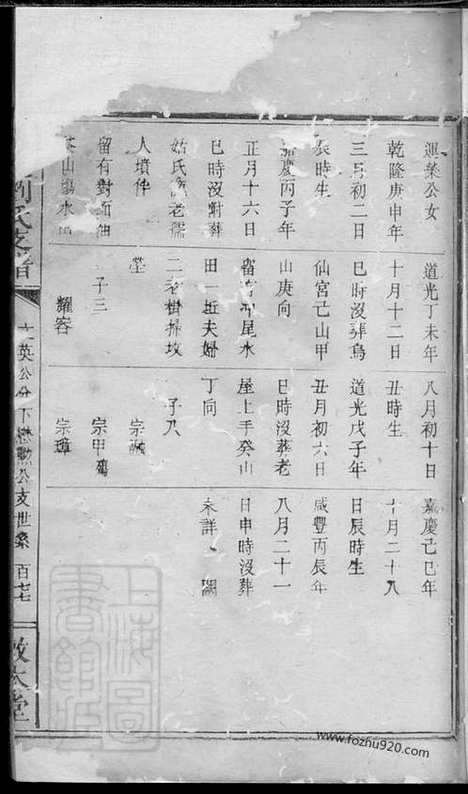 運業公女
乾隆庚申年
三月初二日
辰時生
嘉慶丙子年
正月十六日
巳時沒對葬
姑氏老孺
人墳伴
留有對面油
茶山場水
道光丁未年
十月十二日
巳時沒葬烏
仙宮亡山甲
山庚向
留尾水
田一坵夫婦
二老樹掃坟
塋
子三
耀容
八月初十日
丑時生
道光戊子年
丑月初六日
巳時沒葬老
屋上手癸山
丁向
子八
宗
宗甲
宗璋
嘉慶己巳年
十月二十八
日辰時生
咸豐丙辰年
八月二十一
日申時沒葬
未詳
氏支譜
文英公分下懋勲公支世系 百七
敦本堂
上海圖書館藏
www.fozhu920.com